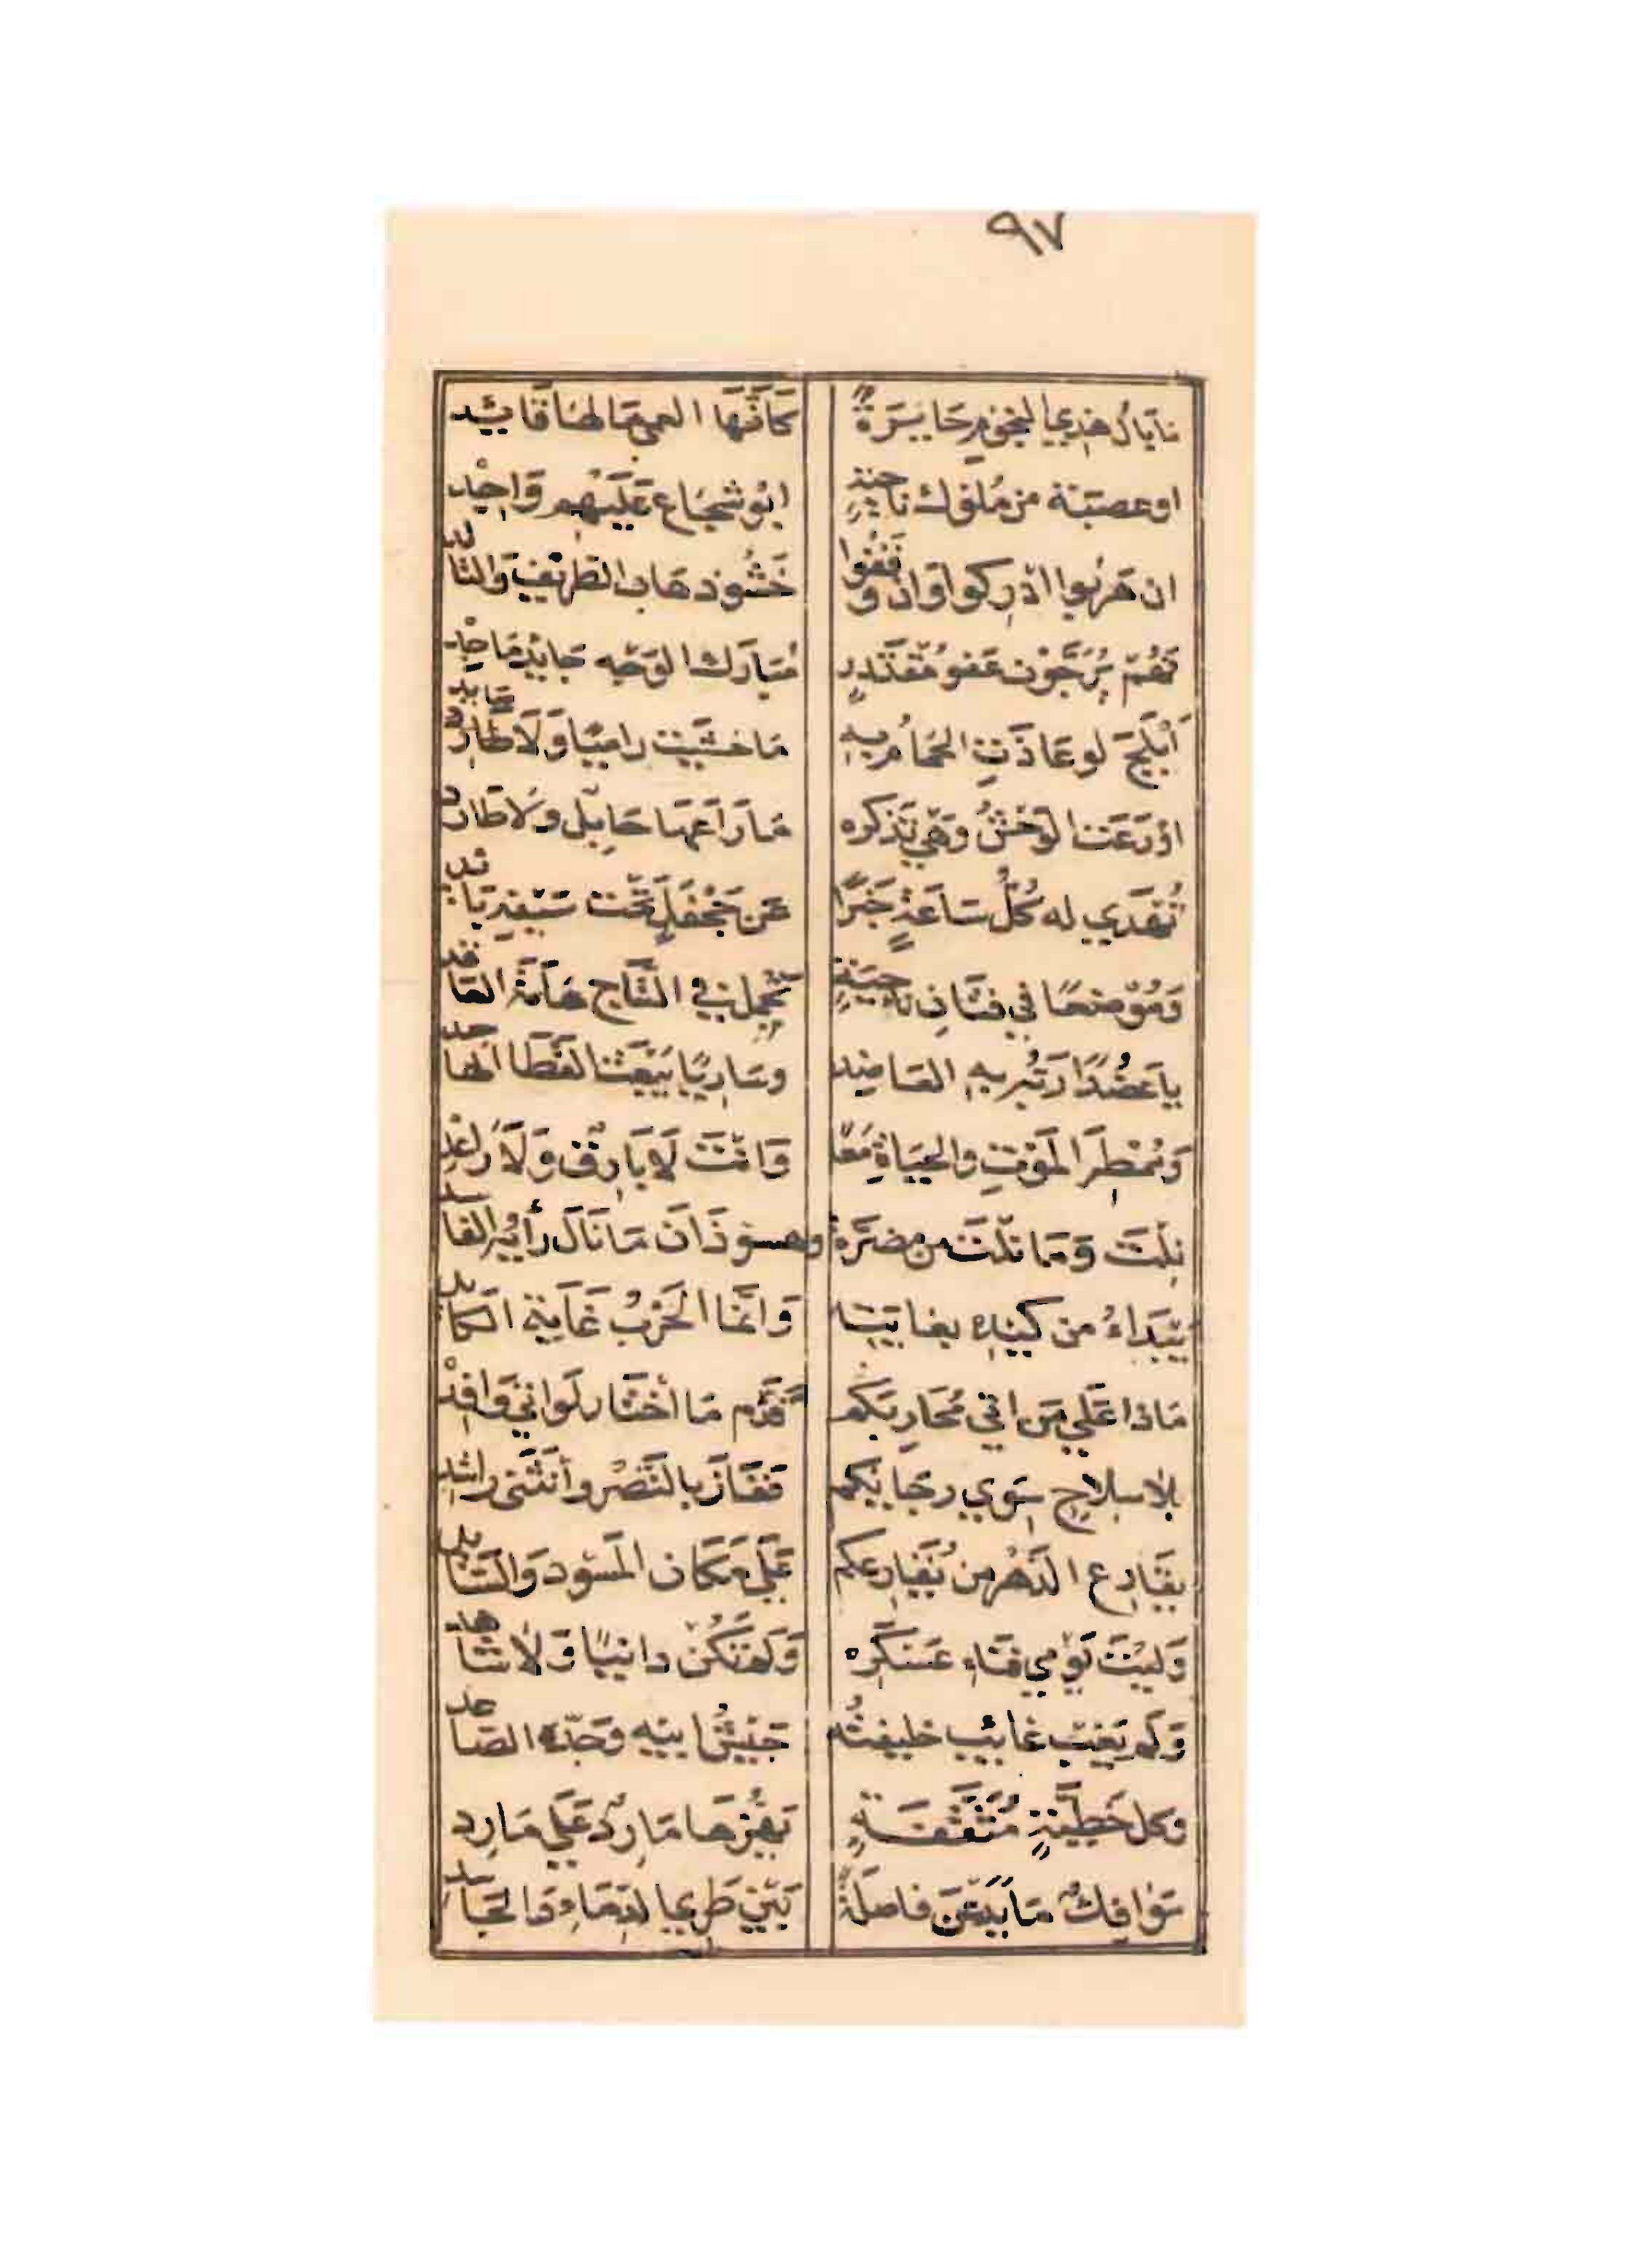 ٩٧
ما بال هذي النجوم حَايَرَةٌ كَأَنَّهَا العمي مَا لهَا قَايِد
او عصبَة من مُلوك ناحيَةٍ ابُو شجَاع عَلَيْهِم وَاجِد
ان هَربُوا ادْرِكوا وَان وقفُوا خَشُوا ذهَاب الطريف وَالتالد
فَهُمْ يُرَجَّوْن عَفو مُقْتَدِرٍ مُبَارَك الوَجْه جَايدٍ مَاجِد
أَبْلَجَ لو عَاذَتِ الحَمَامُ بِهِ مَا خَشِيَت رامِيًا وَلَا صَايد
اوْ رَعَت الوَحْشُ وَهْي تَذكره مَا رَاعَهَا حَابِل وَلَا طَارد
تُهْدِي له كُلُّ سَاعَةٍ خَبَرًا عَن جَحْفَلٍ تَحْت سَيْفِهِ بَائد
وَمُوْضِعًا في فتَان نَاجِيَةٍ يَحْمِل في التَّاج هَامَة العَاقد
يا عَضُدًا رَبُّه بهِ العَاضِد وسَارِيًا يَبْعَث القَطَا الهَاجد
وَمُمْطِرَ المَوْتِ والحيَاةِ مَعًا وَانْتَ لَا بَارِقٌ وَلَا رَاعِد
نِلْتَ وَمَا نلْتَ من مضَرَّة وهسوذَانَ مَا نَالَ رَأْيُه الفَاسد
يَبْدَاءُ من كَيْدِه بِغايَتِه وَانَّمَا الحَرْبُ غَايَة الكَايد
مَاذا عَلَي مَن اتي مُحَارِبَكم فَذَم مَا اخْتَار لَو اتي وَافِد
بلا سِلاحٍ سِوَي رجَايكم فَفَازَ بالنَّصْر وَأنثَنى رَاشِد
يقَارِع الدَّهْر من يُقَارِعكم عَلَي مَكَان المَسُود وَالسَّائد
وَليْتَ يَوْمي فنَاءِ عَسْكَرِه وَلَم تَكُن دانيًا وَلَا شاهد
وَلَم يَغِب غايب خليفتُه جَيْشُ ابيه وَجَدّه الصَّاعد
وكل خَطِيَّةٍ مُثَقَّفَةٍ يَهُزّهَا مَارِدٌ عَلَي مَارِد
سَوَافِكٌ مَا يَدَعْنَ فاصلَةً بَيْن طَرِي الدِّمَاءِ وَالجَاسد